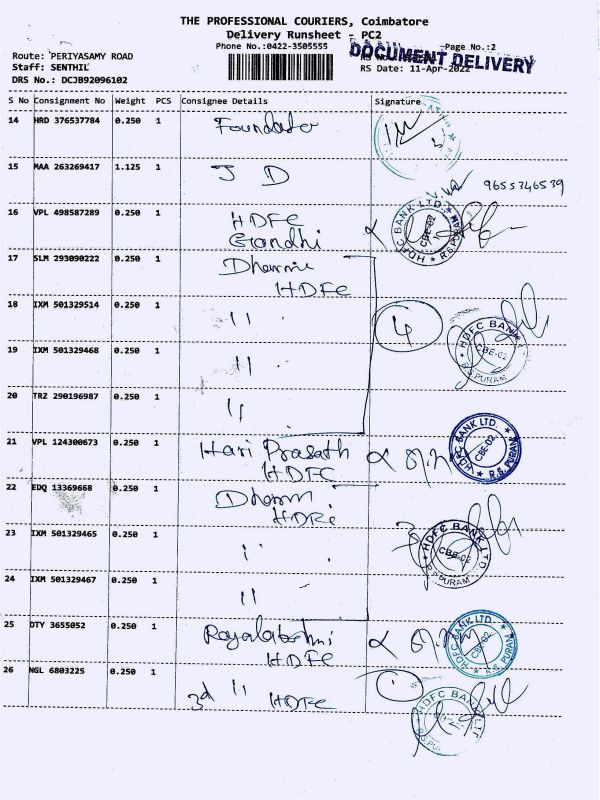 THE PROFESSIONAL COURIERS, Coimbatore
Delivery Runsheet - PC2
Phone No.:0422-3505555
Page No.:2
DOCUMENT DELIVERY
Route: PERIYASAMY ROAD
Staff: SENTHIL
DRS No.: DCJB92096102
RS Date: 11-Apr-2022
S No Consignment No Weight PCS Consignee Details Signature
14 HRD 376537784 0.250 1
15 MAA 263269417 1.125 1 J D
9655346539
16 VPL 498587289 0.250 1 HDFC
Gandhi
HDFC BANK LTD. CBE-02 R.S. PURAM
17 SLM 293090222 0.250 1
HDFC
18 IXM 501329514 0.250 1 11 4
HDFC BANK CBE-02 PURAM
19 IXM 501329468 0.250 1 11
20 TRZ 290196987 0.250 1 11
21 VPL 124300673 0.250 1 Hari Prasath
HDFC
HDFC BANK LTD. CBE-02 R.S. PURAM
22 EDQ 13369668 0.250 1
23 IXM 501329465 0.250 1
3
HDFC BANK LTD CBE-02 PURAM
24 IXM 501329467 0.250 1 11
25 DTY 3655052 0.250 1
HDFC
HDFC BANK LTD. CBE-02 R.S. PURAM
26 NGL 6803225 0.250 1 3rd 11 HDFC
HDFC BANK LTD